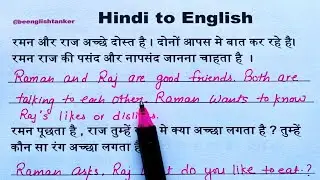 Hindi to English
@beenglishtanker
रमन और राज अच्छे दोस्त है । दोनों आपस मे बात कर रहे है।
रमन राज की पसंद और नापसंद जानना चाहता है ।
Raman and Raj are good friends. Both are
talking to each other. Raman wants to know
Raj's likes or dislikes.
रमन पूछता है , राज तुम्हें मे क्या अच्छा लगता है ? तुम्हें
कौन सा रंग अच्छा लगता है
Raman asks, Raj do you like to eat.?